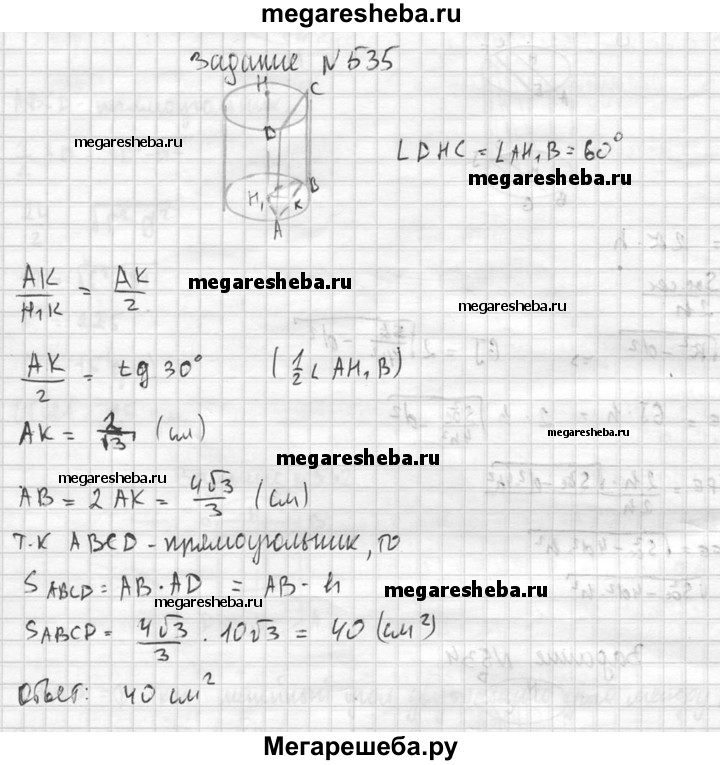 megaresheba.ru
Задание №535
H
C
D
B
H₁
K
A
megaresheba.ru
∠DHC = ∠AH₁B = 60°
megaresheba.ru
AK/H₁K = AK/2
megaresheba.ru
megaresheba.ru
AK/2 = tg 30° (1/2 ∠ AH₁B)
AK = 2/√3 (см)
megaresheba.ru
megaresheba.ru
megaresheba.ru
AB = 2 AK = 4√3/3 (см)
т.к ABCD - прямоугольник, то
S ABCD = AB · AD = AB · h
megaresheba.ru
megaresheba.ru
S ABCD = 4√3/3 · 10√3 = 40 (см²)
Ответ: 40 см²
Мегарешеба.ру